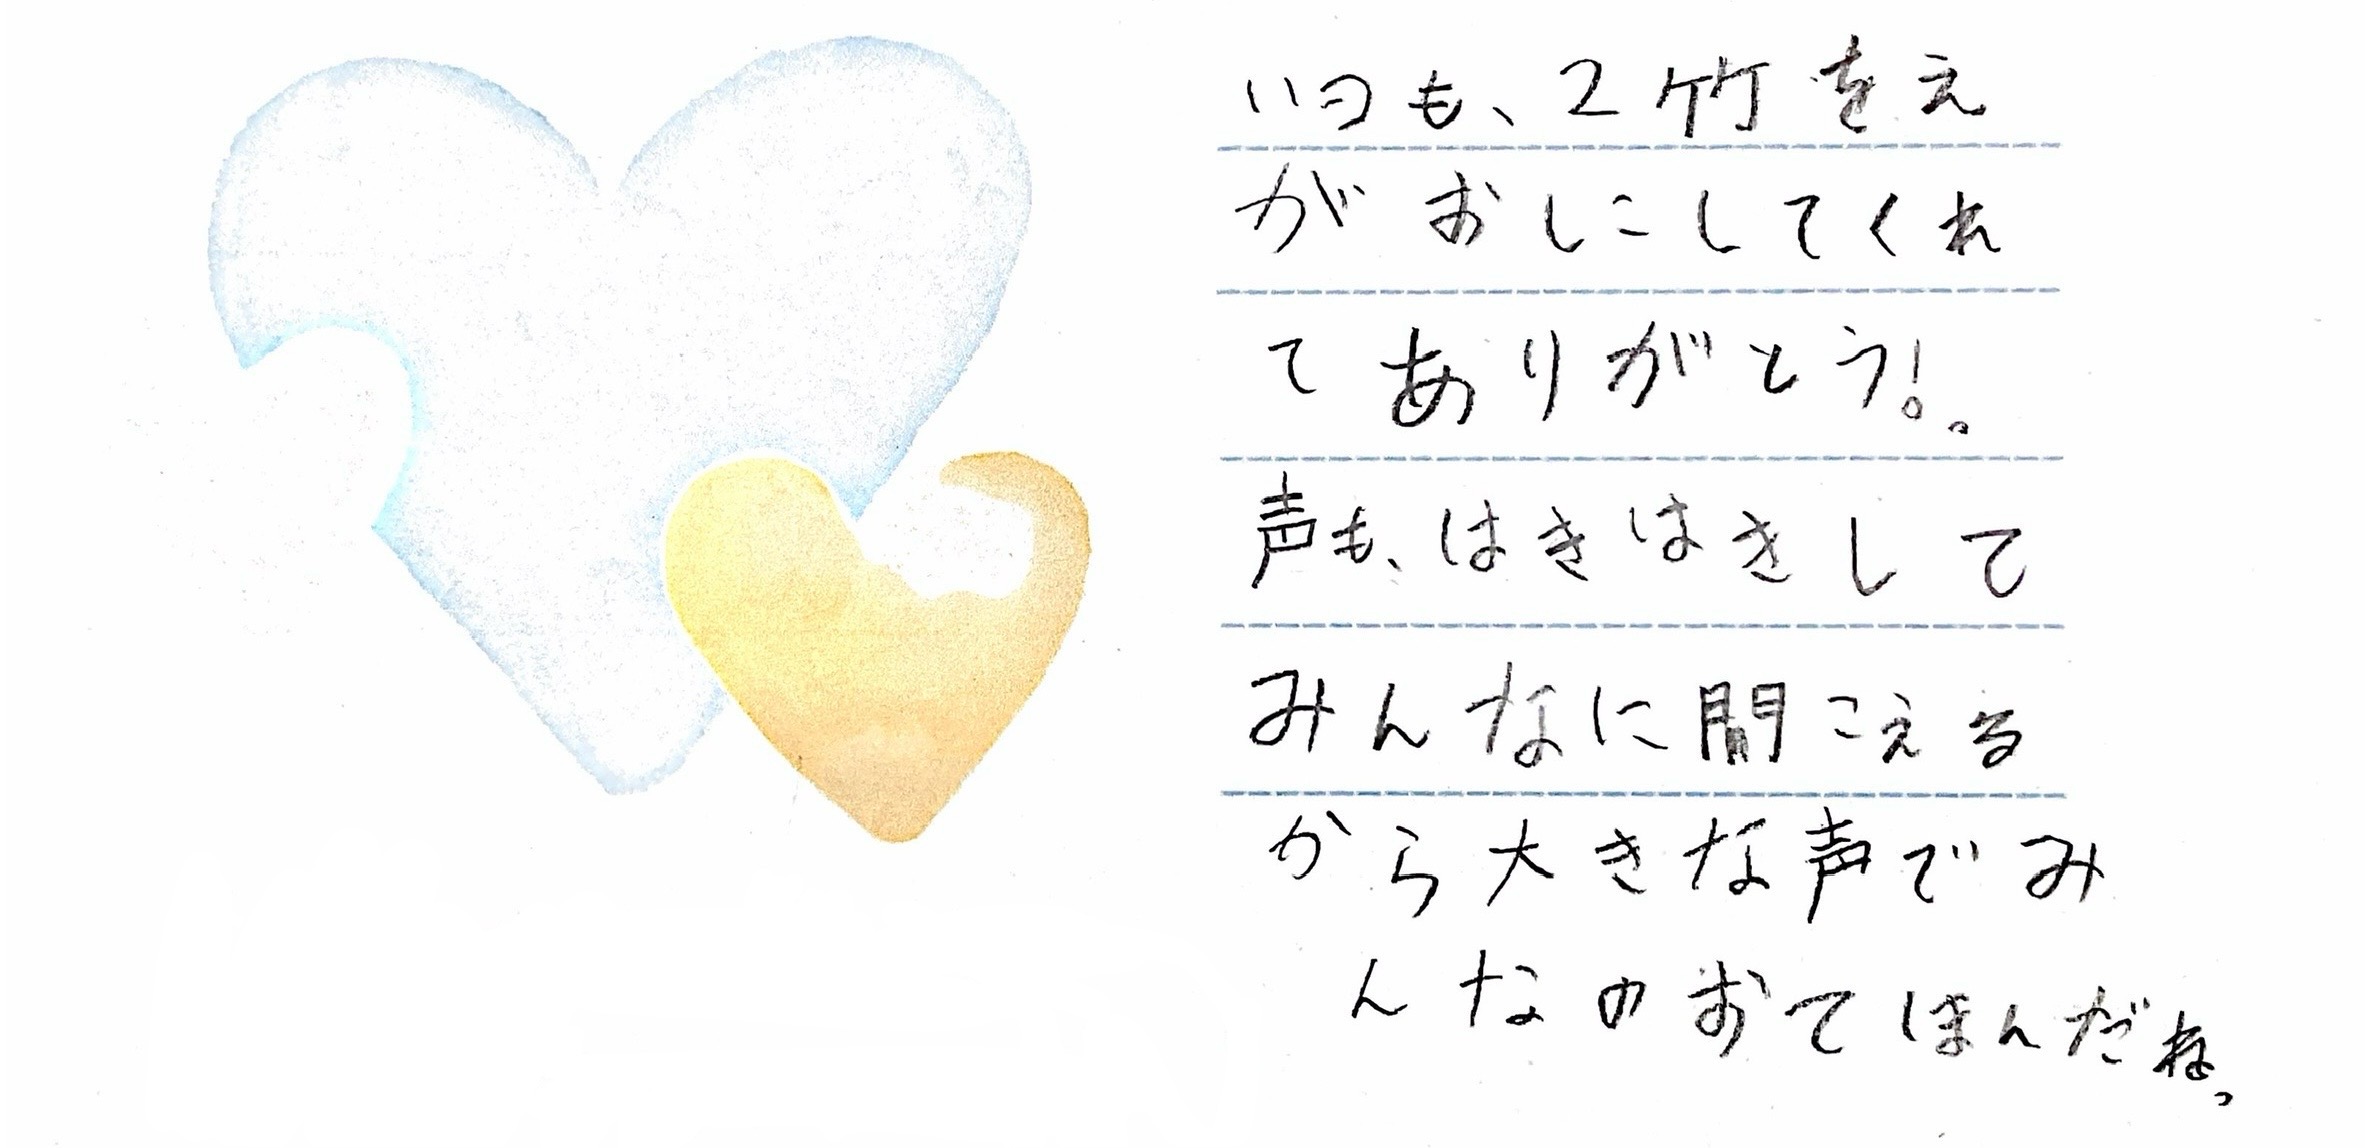 いつも、2竹をえ
がおしこしてくれ
てありがとう!。
声も、はきはきして
みんなに聞こえる
から大きな声でみ
んなのおてほんだね。